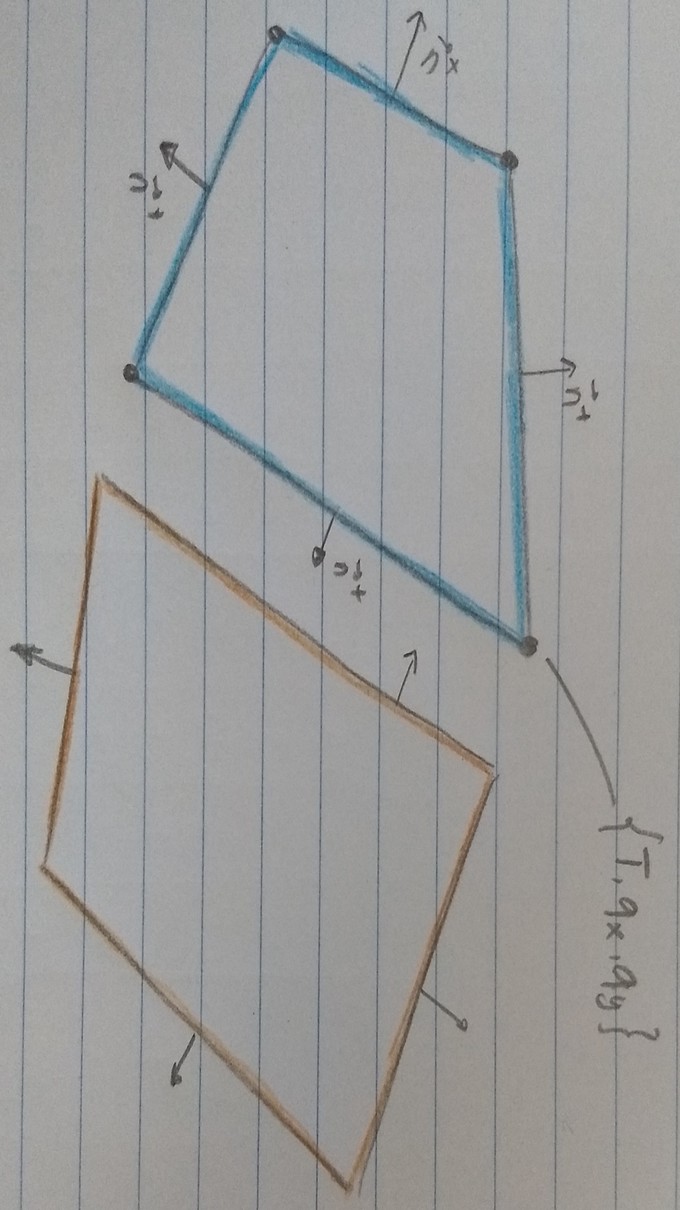 {T, qx, qy}
n⃗⁺
n⃗ˣ
n⃗⁺
n⃗⁺